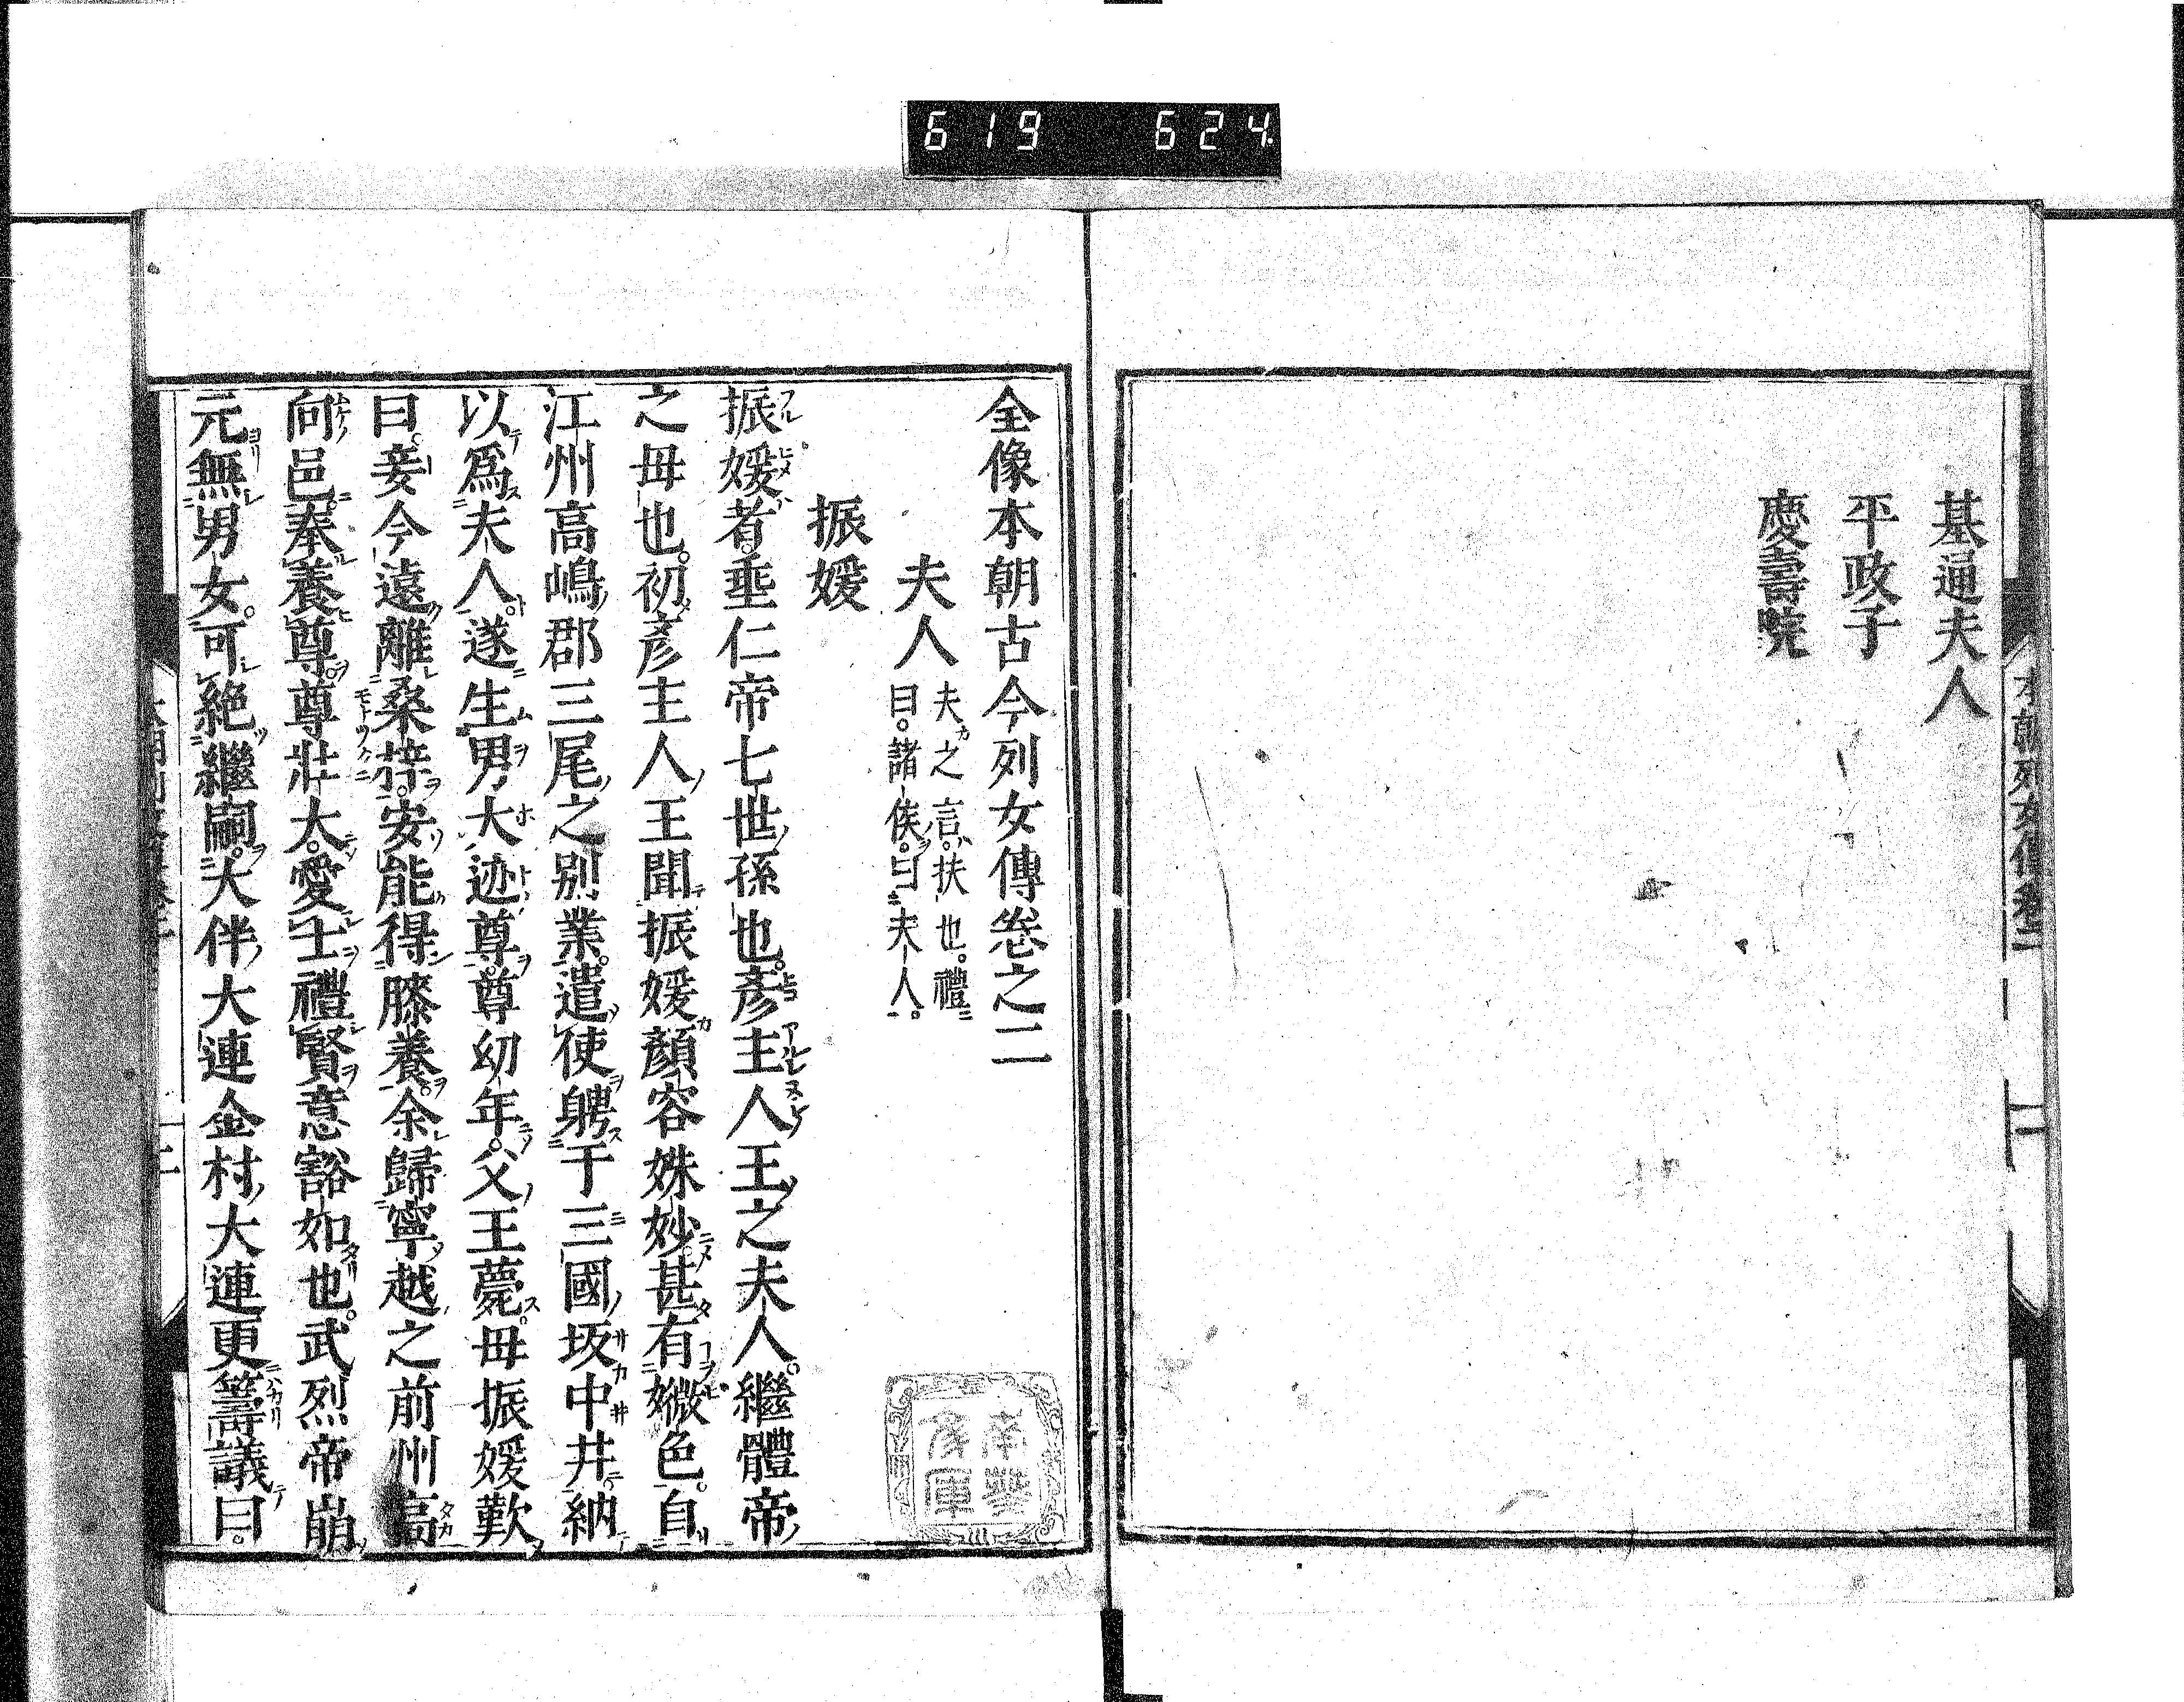 619 624
基通夫人
平政子
慶壽院
本朝列女傳卷二
二
全像本朝古今列女傳卷之二
夫人 夫之言扶也。禮
曰。諸侯。曰夫人。
振媛
振媛者。垂仁帝七世孫也。彥主人王之夫人。繼體帝
之母也。初彥主人王聞振媛顏容姝妙甚有媺色。自
江州高嶋郡三尾之別業。遣使聘于三國坂中井納
以爲夫人。遂生男大迹尊。尊幼年。父王薨。母振媛歎
曰。妾今遠離桑梓。安能得膝養。余歸寧越之前州高
向邑奉養尊。尊壯大。愛士禮賢意豁如也。武烈帝崩
元無男女。可絕繼嗣。大伴大連金村大連更籌議曰。